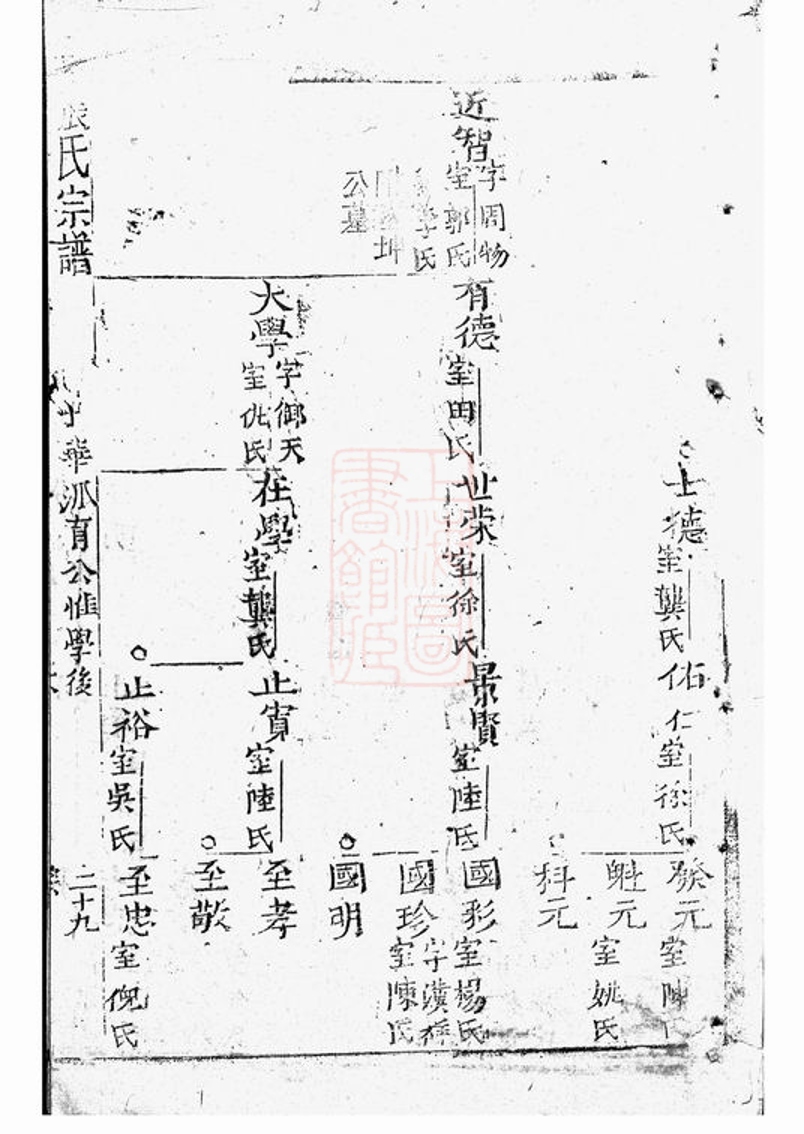 士德
室龔氏
佑仁
室徐氏
發元
室陳
魁元
室姚氏
科元
近智
字周物
室郭氏
李氏
坤
公墓
有德
室田氏
世荣
室徐氏
景賢
室陸氏
國彩
室楊氏
國珍
字漢
室陳氏
國明
大學
字御天
室仇氏
在學
室龔氏
止寅
室陸氏
至孝
至敬
止裕
室吳氏
至忠
室倪氏
氏宗譜
華派育公惟學後
二十九
上海圖書館藏